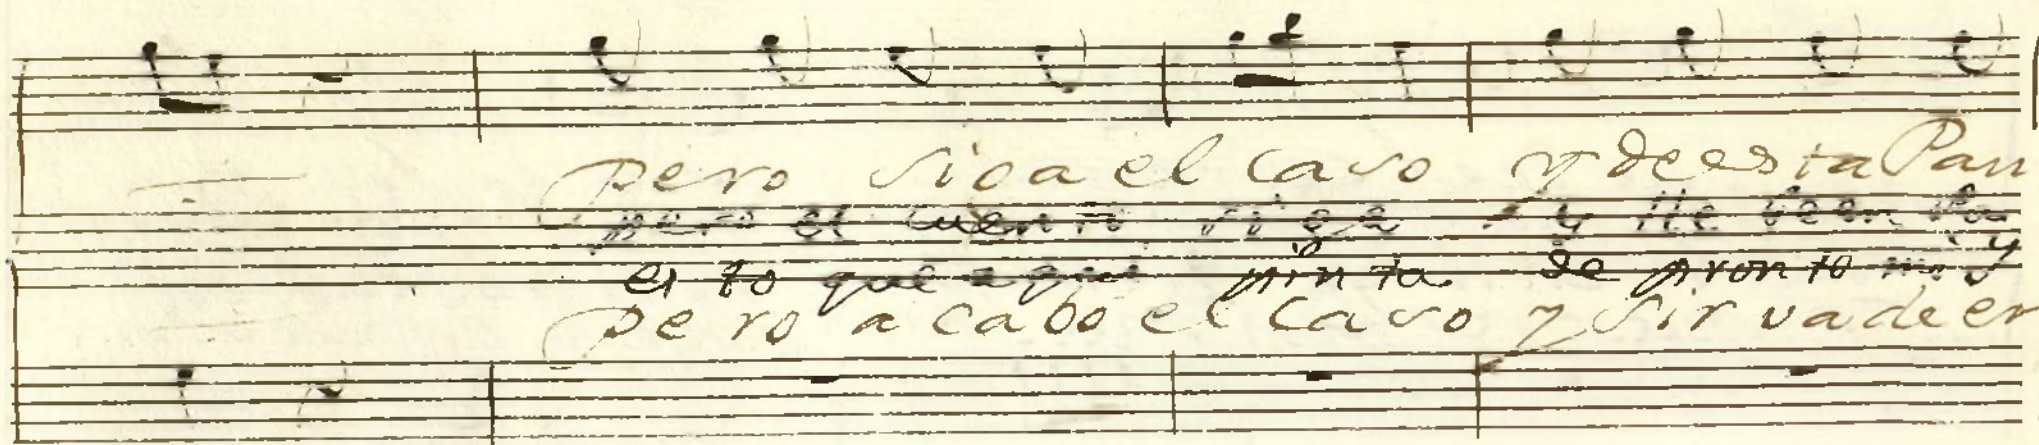 pero siga el caso y de esta Parr
pero el cuento siga y
esto que aqui pinta de pronto
pero acabo el caso y sirva de er